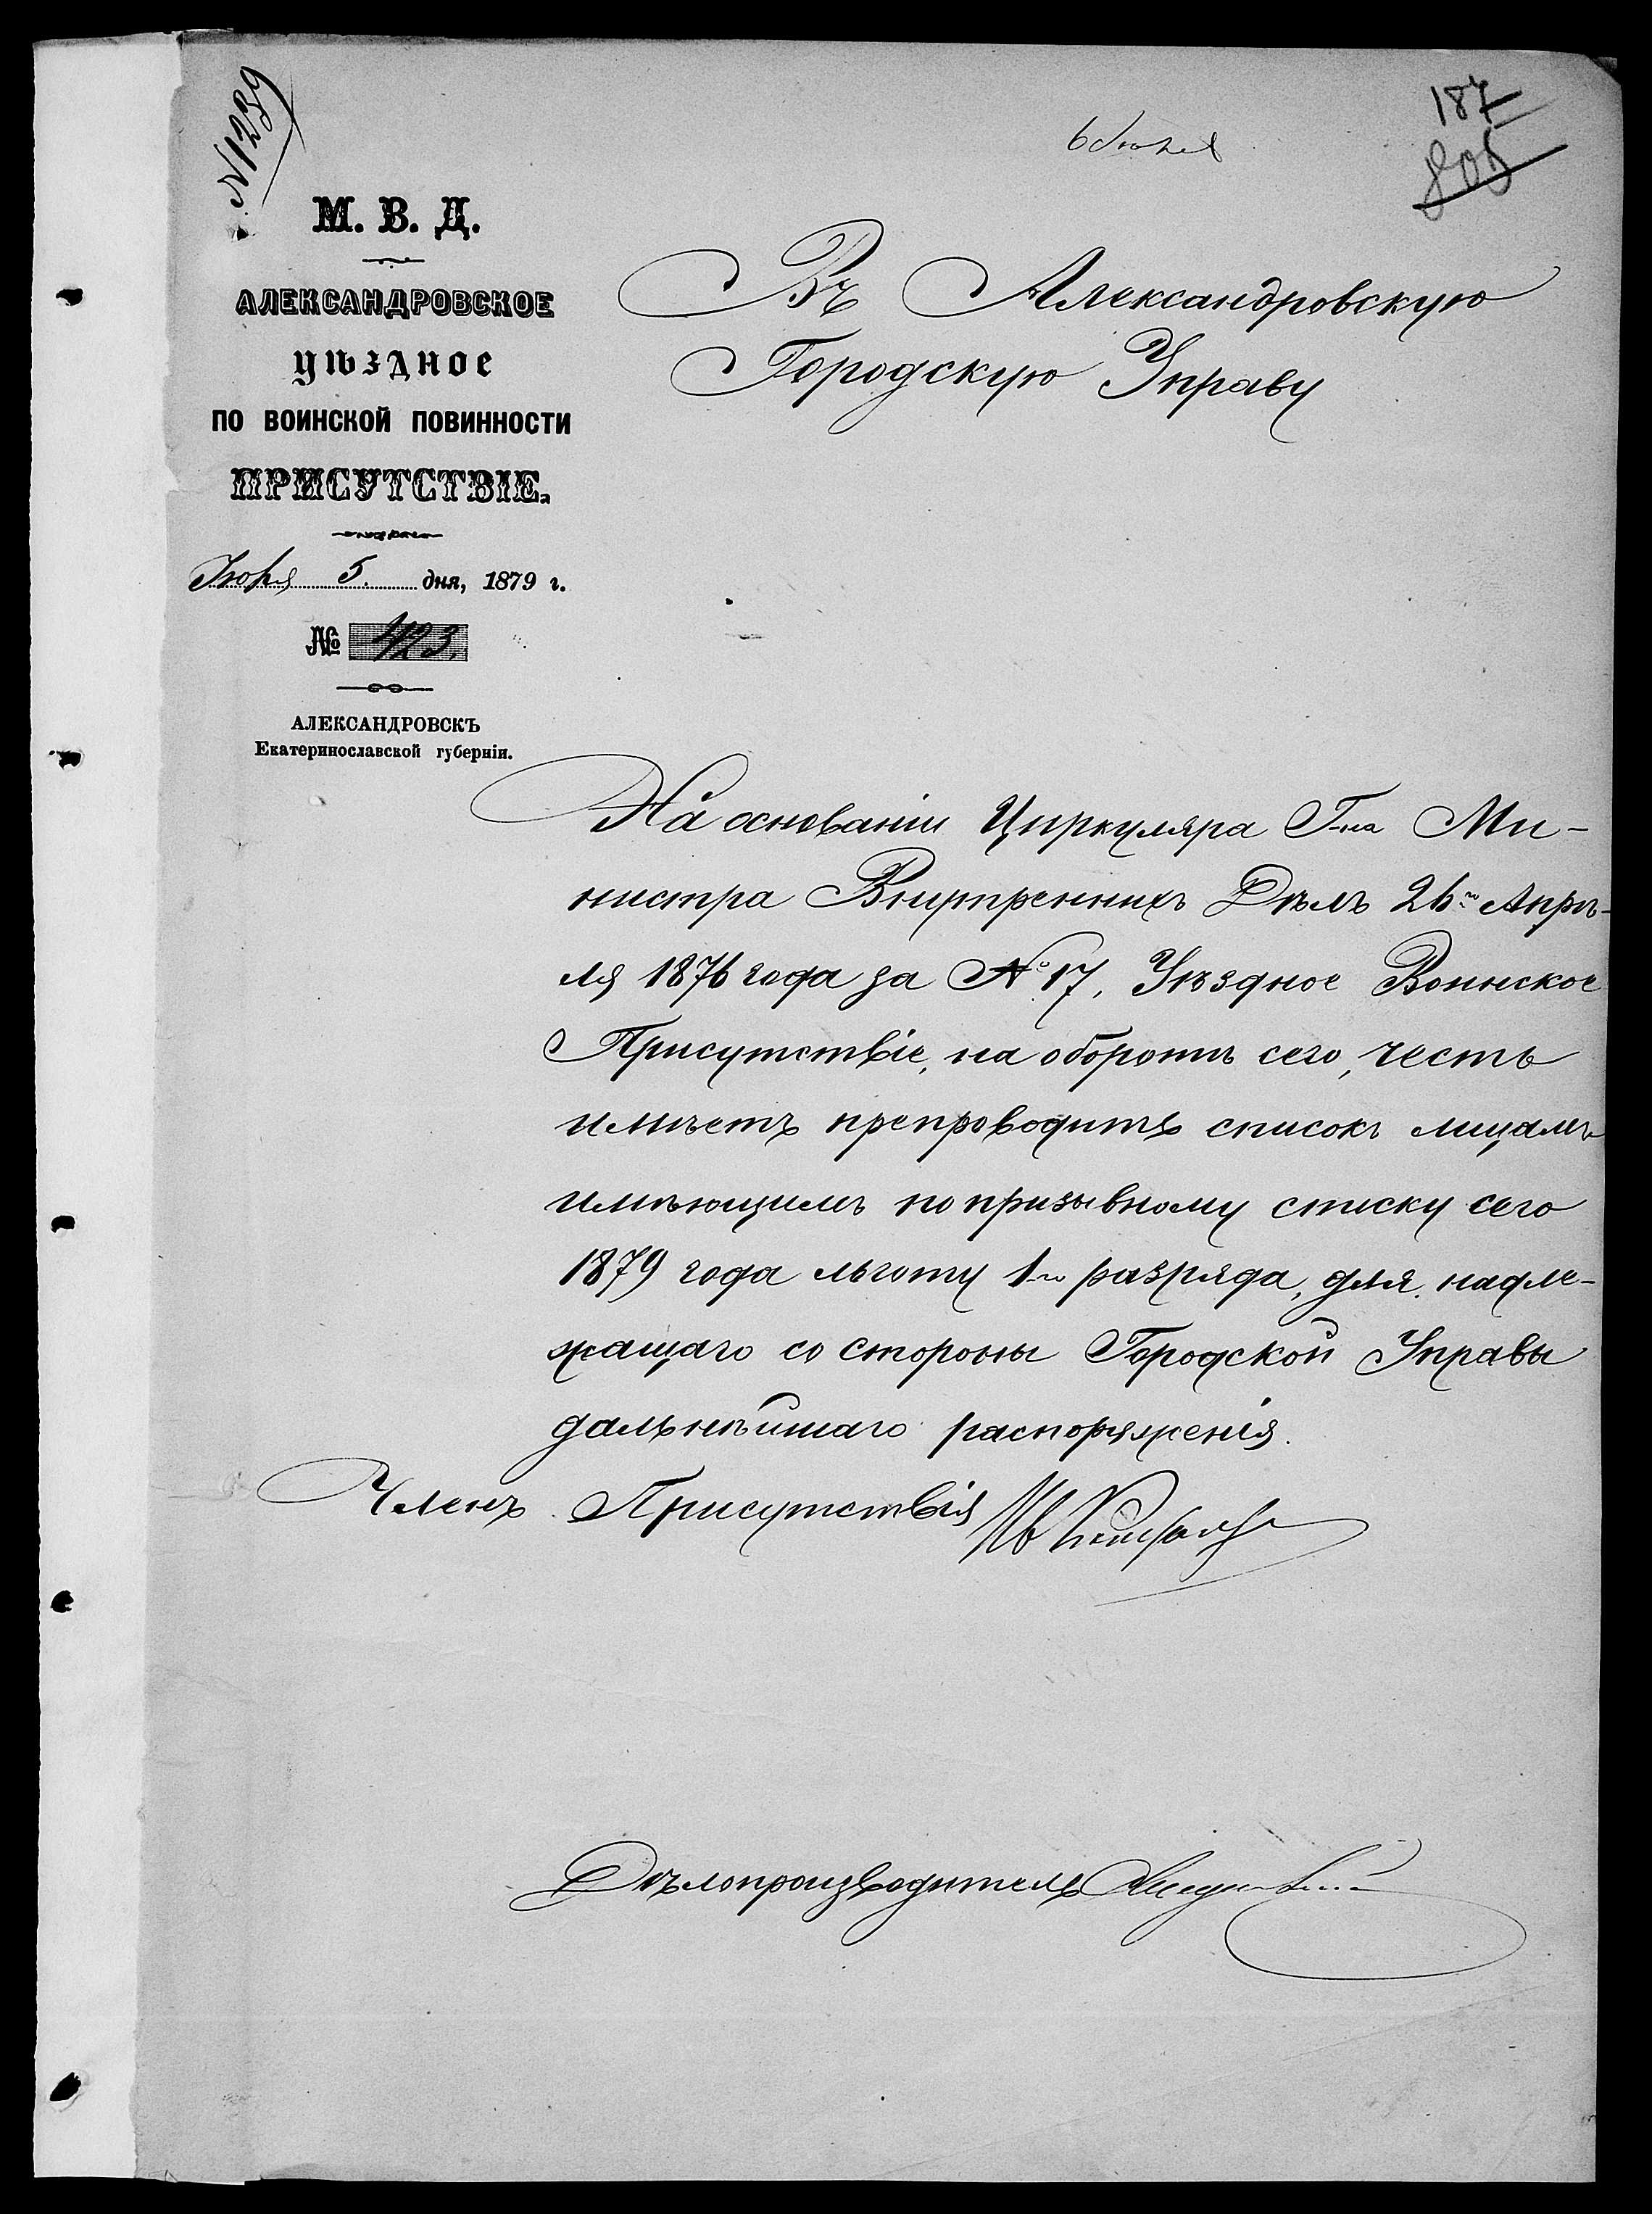 №1239
6 Іюля
187
805
М. В. Д.
АЛЕКСАНДРОВСКОЕ
УѢЗДНОЕ
ПО ВОИНСКОЙ ПОВИННОСТИ
ПРИСУТСТВІЕ.
Іюля 5. дня, 1879 г.
№ 423.
АЛЕКСАНДРОВСКЪ
Екатеринославской губерніи.
Въ Александровскую
Городскую Управу
На основаніи Циркуляра Г-на Ми-
нистра Внутреннихъ Дѣлъ 26го Апрѣ-
ля 1876 года за № 17, Уѣздное Воинское
Присутствіе, на оборотѣ сего, честь
имѣетъ препроводить списокъ лицамъ
имѣющимъ по призывному списку сего
1879 года льготу 1-го разряда, для надле-
жащаго со стороны Городской Управы
дальнѣйшаго распоряженія.
Членъ Присутствія
Дѣлопроизводитель